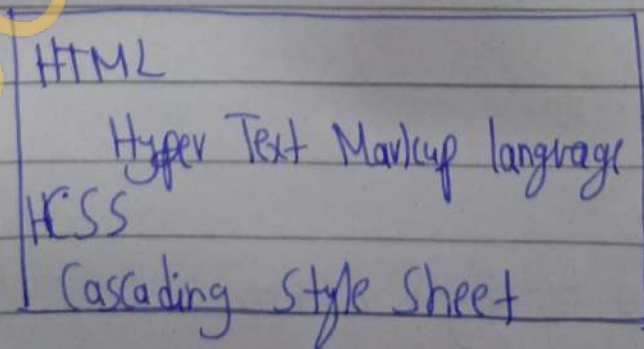 HTML
Hyper Text Markup language
HCSS
Cascading Style Sheet